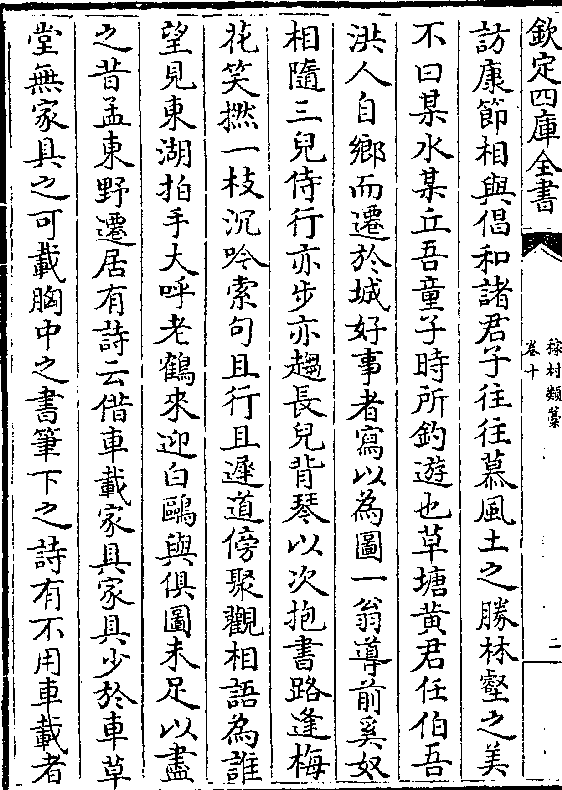 欽定四庫全書
稼村類藁
卷十
二
訪康節相與倡和諸君子往往慕風土之勝林壑之美
不曰某水某丘吾童子時所釣遊也草塘黄君任伯吾
洪人自鄉而遷於城好事者寫以為圖一翁導前奚奴
相隨三兒侍行亦步亦趨長兒背琴以次抱書路逢梅
花笑撚一枝沉吟索句且行且遲道傍聚觀相語為誰
望見東湖拍手大呼老鶴來迎白鷗與俱圖未足以盡
之昔孟東野遷居有詩云借車載家具家具少於車草
堂無家具之可載胸中之書筆下之詩有不用車載者